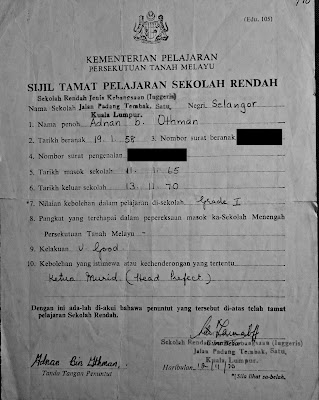 (Edu. 105)
KEMENTERIAN PELAJARAN
PERSEKUTUAN TANAH MELAYU
SIJIL TAMAT PELAJARAN SEKOLAH RENDAH
Sekolah Rendah Jenis Kebangsaan (Inggeris)
Nama Sekolah Jalan Padang Tembak, Satu, Negri Selangor
Kuala Lumpur.
1. Nama penoh Adnan b. Othman
2. Tarikh beranak 19.1.58 3. Nombor surat beranak
4. Nombor surat pengenalan
5. Tarikh masok sekolah 11.11.65
6. Tarikh keluar sekolah 13.11.70
*7. Nilaian kebolehan dalam pelajaran di-sekolah Grade I
8. Pangkat yang terchapai dalam pepereksaan masok ka-Sekolah Menengah
Persekutuan Tanah Melayu -
9. Kelakuan V. Good
10. Kebolehan yang istimewa atau kechenderongan yang tertentu
Ketua Murid (Head Prefect)
Dengan ini ada-lah di-akui bahawa penuntut yang tersebut di-atas telah tamat
pelajaran Sekolah Rendah.
Sekolah Rendah Kebangsaan (Inggeris)
Jalan Padang Tembak, Satu,
Kuala Lumpur.
Adnan Bin Othman.
Tanda Tangan Penuntut
Haribulan 13/11/70
*(Sila lihat sa-belah.)